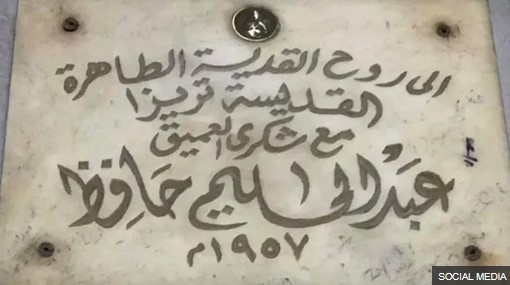 الى روح القدية الطاهرة
القديسة تريزا
مع شكرى العميق
عبد الحليم حافظ
١٩٥٧م
SOCIAL MEDIA